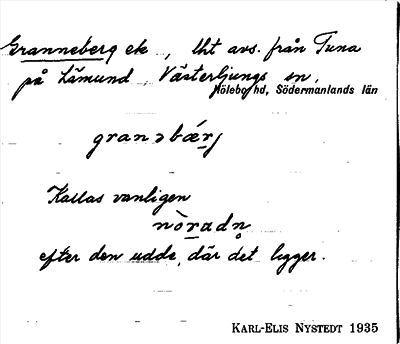 Granneberg ek, lht avs. från Tuna
på Lämund, Västerljungs sn,
Hölebo hd, Södermanlands län
granəbær̩j
Kallas vanligen
nòradn̥
efter den udde, där det ligger.
KARL-ELIS NYSTEDT 1935